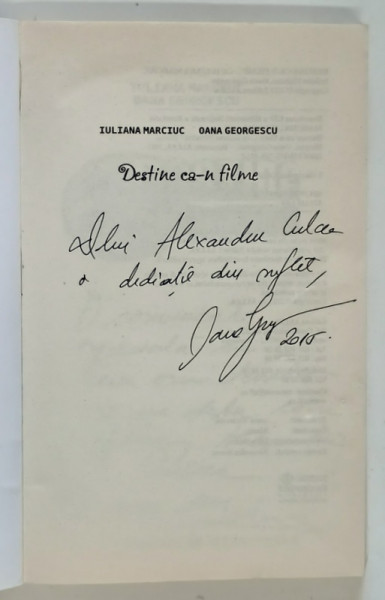 IULIANA MARCIUC OANA GEORGESCU
Destine ca-n filme
Dlui Alexandru Culcea
o dedicație din suflet,
2015.